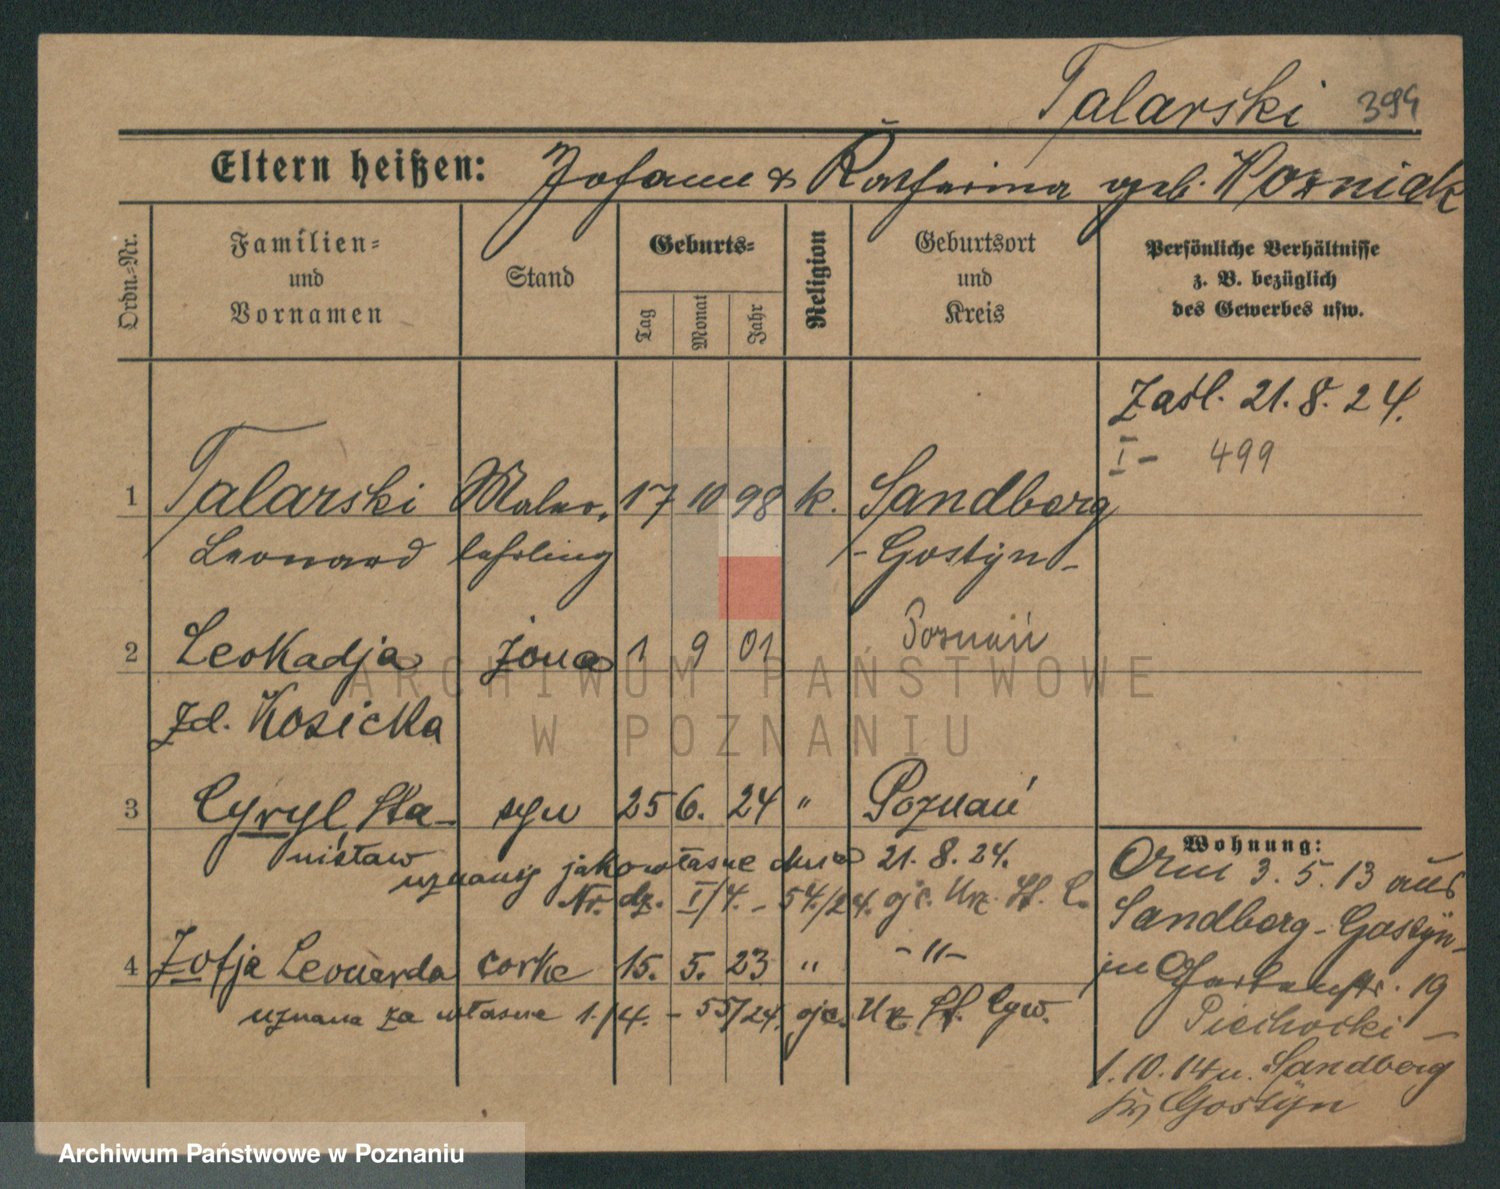 Talarski 394
Eltern heißen: Johann & Katharina geb. Wozniak
Ordn.-Nr.
Familien-
und
Vornamen
Stand
Geburts-
Tag
Monat
Jahr
Religion
Geburtsort
und
Kreis
Persönliche Verhältnisse
z. B. bezüglich
des Gewerbes usw.
Zaśl. 21. 8. 24.
I - 499
1 Talarski Maler- 17 10 98 k. Sandberg
Leonard lehrling - Gostyn -
2 Leokadja żona 1 9 01 Poznań
zd. Kosicka
3 Cyryl, Sta- syn 25 6. 24 " Poznań
nisław
uznany jako własne dnia 21. 8. 24.
Nr. dz. I/4. - 54./24. ojc. Urz. St. C.
4 Zofja Leonarda córka 15. 5. 23 " - " -
uznana za własne 1./4. - 55/24. ojc. Urz. St. Cyw.
Wohnung:
Am 3. 5. 13 aus
Sandberg - Gostyn -
in Gartenstr. 19
Piechocki -
1. 10. 14 n. Sandberg
Kr. Gostyn
ARCHIWUM PAŃSTWOWE
W POZNANIU
Archiwum Państwowe w Poznaniu